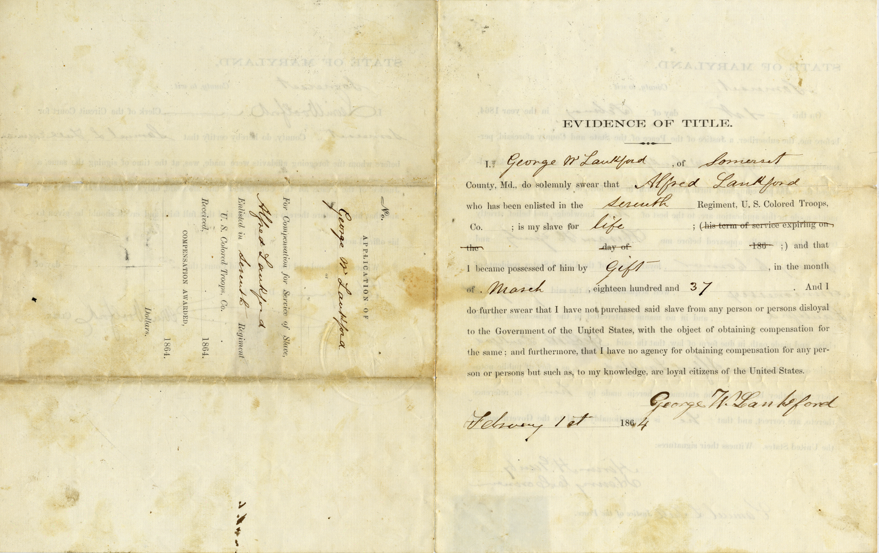 No.
APPLICATION OF
George W Lankford
For Compensation for Service of Slave,
Alfred Lankford
Enlisted in Seventh Regiment
U. S. Colored Troops, Co.
Received, 1864.
COMPENSATION AWARDED,
Dollars,
1864.
EVIDENCE OF TITLE.
I, George W Lankford , of Somerset
County, Md., do solemnly swear that Alfred Lankford
who has been enlisted in the seventh Regiment, U. S. Colored Troops,
Co. ; is my slave for life ; (his term of service expiring on
the day of 186 ;) and that
I became possessed of him by Gift , in the month
of March , eighteen hundred and 37 . And I
do further swear that I have not purchased said slave from any person or persons disloyal
to the Government of the United States, with the object of obtaining compensation for
the same; and furthermore, that I have no agency for obtaining compensation for any per-
son or persons but such as, to my knowledge, are loyal citizens of the United States.
George W. Lankford
February 1st 1864
STATE OF MARYLAND,
Somerset
STATE OF MARYLAND,
Somerset